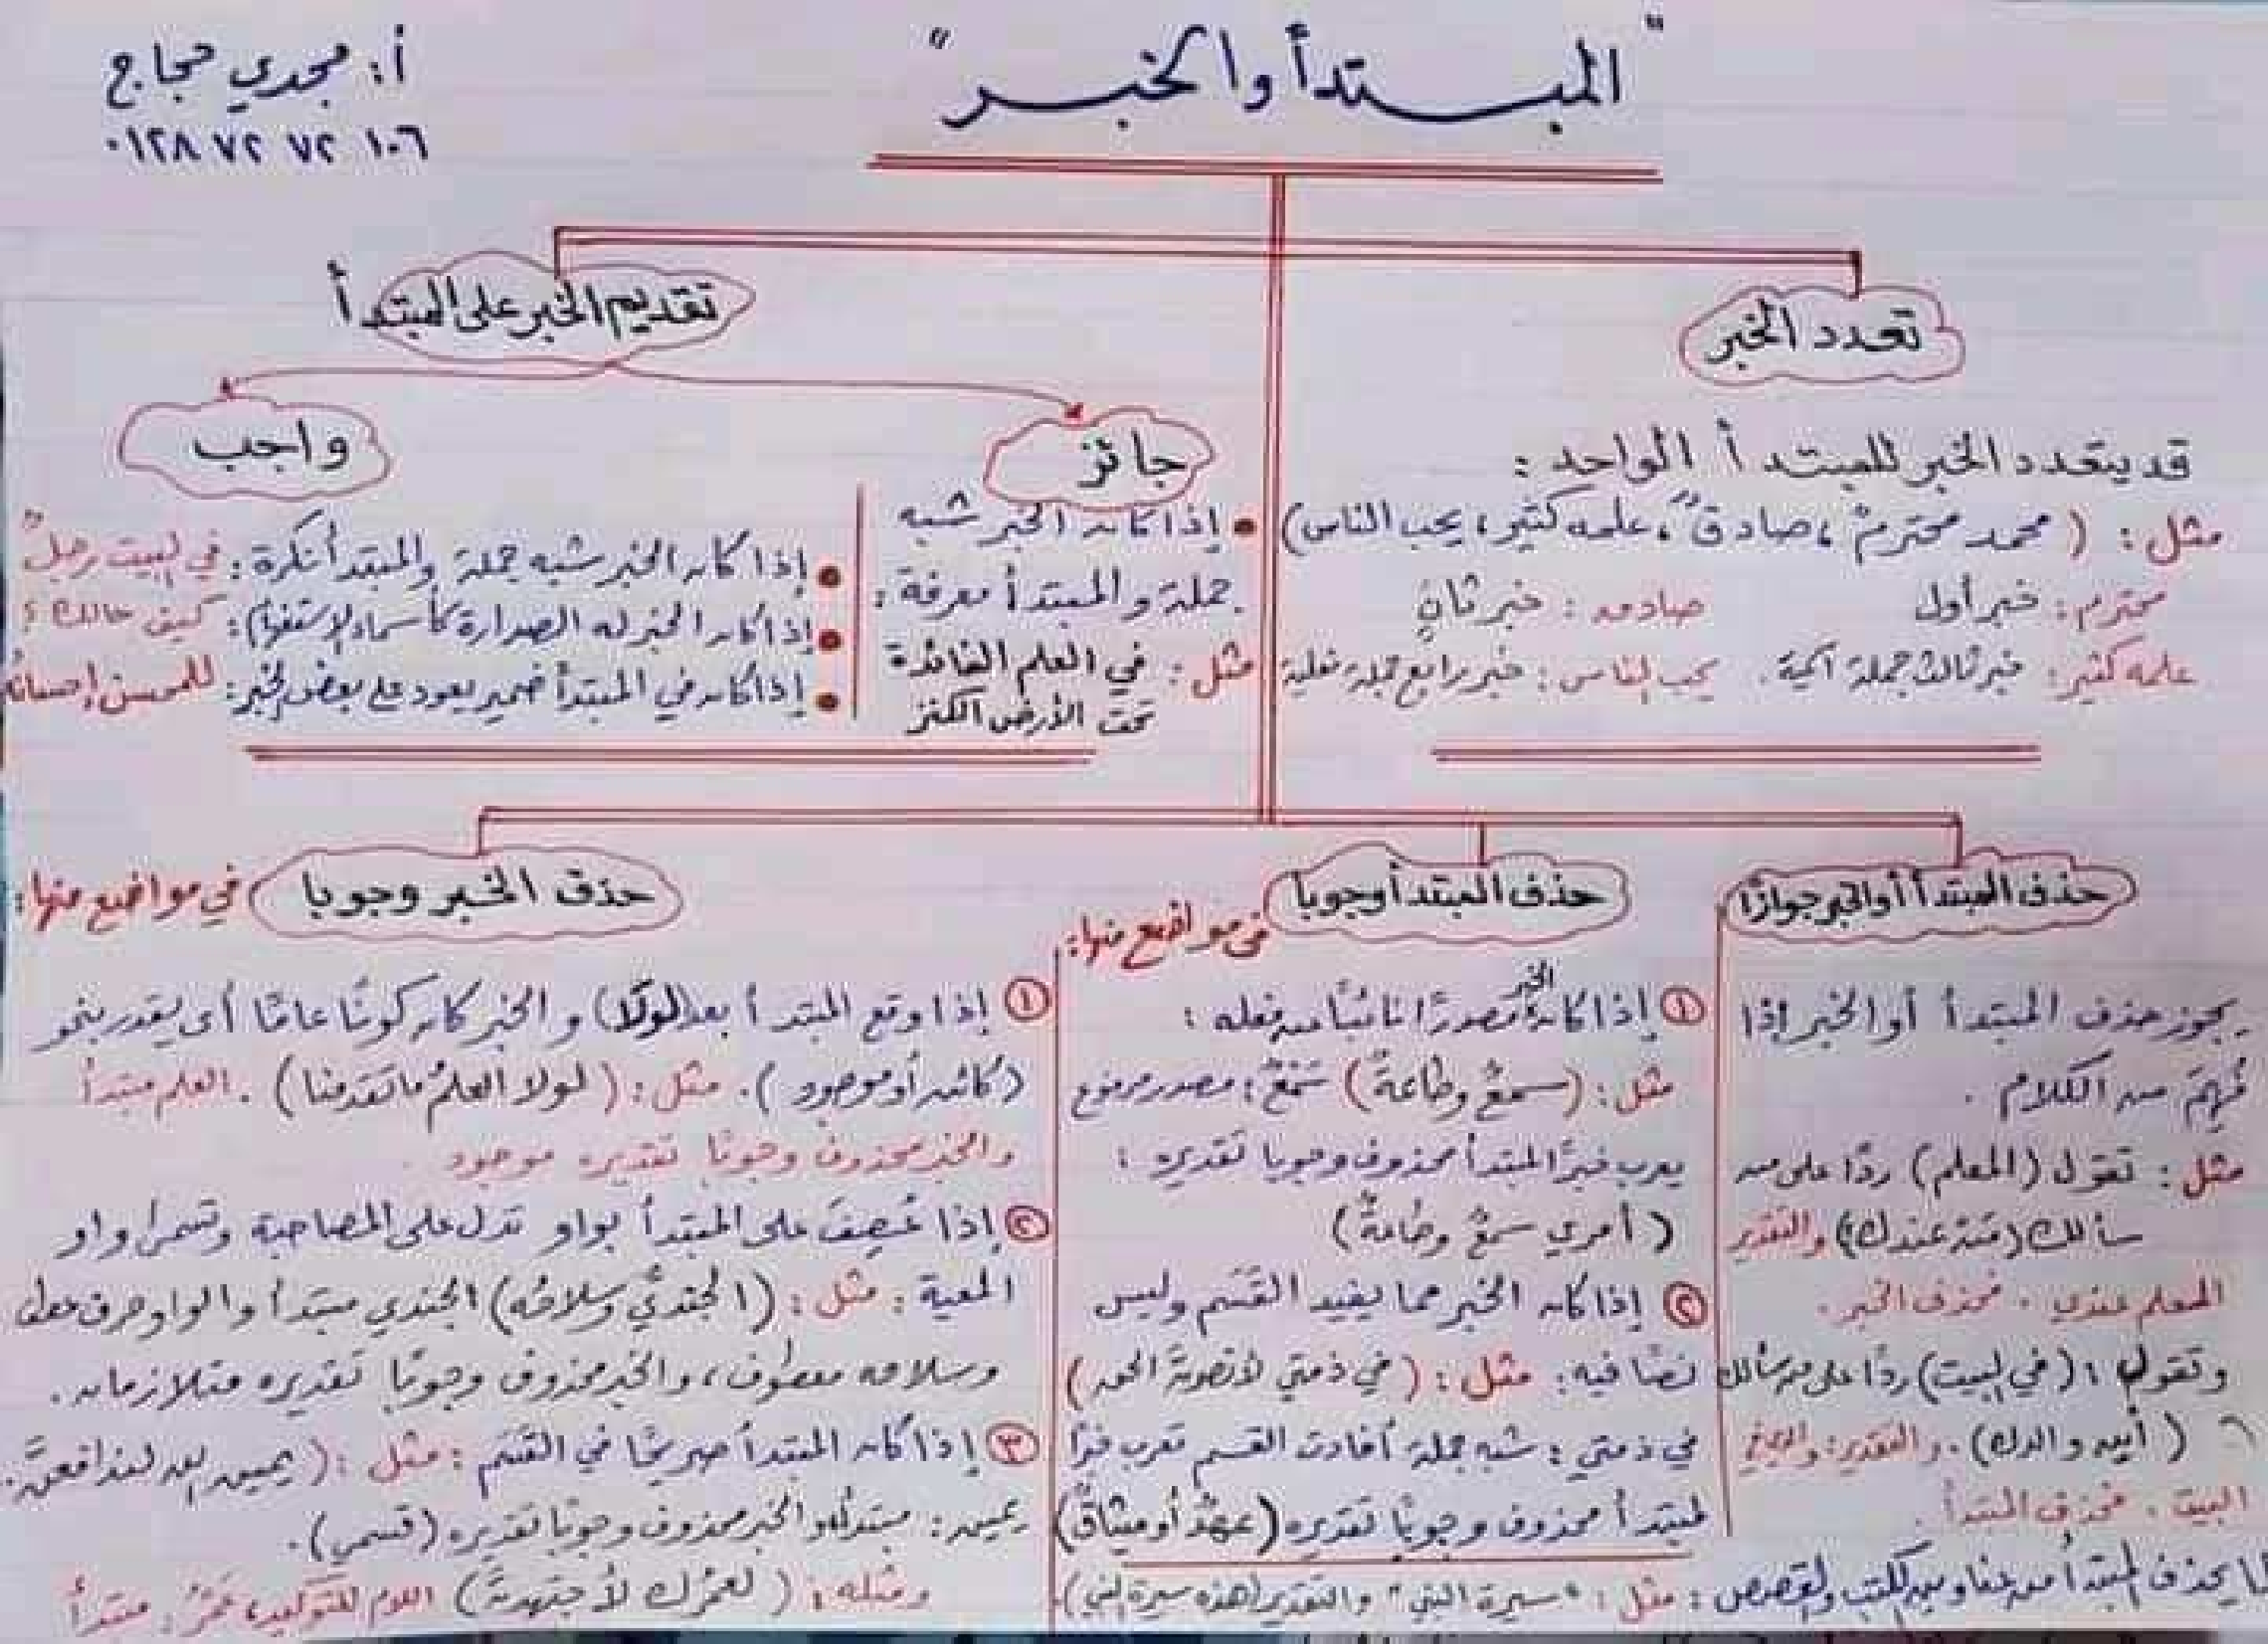 "المبتدأ والخبر"
أ: مجدي حجاج
٠١٢٨ ٧٢ ٧٢ ١٠٦
تعدد الخبر
قد يتعدد الخبر للمبتدأ الواحد :
مثل : ( محمد محترمٌ ، صادقٌ ، علمه كثير ، يحب الناس )
محترم : خبر أول صادق : خبر ثانٍ
علمه كثير : خبر ثالث جملة اسمية . يحب الناس : خبر رابع جملة فعلية
تقديم الخبر على المبتدأ
جائز
• إذا كان الخبر شبه
جملة والمبتدأ معرفة :
مثل : في العلم الفائدة
تحت الأرض الكنز
واجب
• إذا كان الخبر شبه جملة والمبتدأ نكرة : في البيت رجلٌ
• إذا كان الخبر له الصدارة كأسماء الاستفهام : كيف حالك ؟
• إذا كان في المبتدأ ضمير يعود على بعض الخبر : للمحسن إحسانه
حذف المبتدأ أو الخبر جوازًا
يجوز حذف المبتدأ أو الخبر إذا
فُهِمَ من الكلام .
مثل : تقول (المعلم) ردًا على من
سألك (مَنْ عندك؟) والتقدير
المعلم عندي . فحذف الخبر .
وتقول : (في البيت) ردًا على من سألك
( أين والدك ) . والتقدير : والدي في
البيت . فحذف المبتدأ .
حذف المبتدأ وجوبا
في مواضع منها :
① إذا كان الخبر مصدرًا نائبًا عن فعله :
مثل : (سمعٌ وطاعةٌ) سَمْعٌ : مصدر مرفوع
يعرب خبرًا لمبتدأ محذوف وجوبا تقديره :
( أمري سمعٌ وطاعةٌ )
② إذا كان الخبر مما يفيد القَسَم وليس
نصًا فيه : مثل : ( في ذمتي لأنصرنَّ الحق )
في ذمتي : شبه جملة أفادت القسم تعرب خبرًا
لمبتدأ محذوف وجوبًا تقديره (عهدٌ أو ميثاقٌ)
يحذف المبتدأ من عناوين الكتب والقصص : مثل : "سيرة النبي" والتقدير (هذه سيرة النبي)
حذف الخبر وجوبا
في مواضع منها :
① إذا وقع المبتدأ بعد (لولا) والخبر كان كونًا عامًا أي يقدر بنحو
(كائن أو موجود ) . مثل : ( لولا العلمُ ما تقدمنا ) . العلم مبتدأ
والخبر محذوف وجوبًا تقديره موجود .
② إذا عُطِفَ على المبتدأ بواو تدل على المصاحبة وتسمى واو
المعية : مثل : (الجنديُّ وسلاحُه) الجندي مبتدأ والواو حرف عطف
وسلاحه معطوف ، والخبر محذوف وجوبًا تقديره متلازمان .
③ إذا كان المبتدأ صريحًا في القَسَم : مثل : (يمين الله لندافعنَّ .
يمين : مبتدأ والخبر محذوف وجوبًا تقديره (قسمي) .
ومثله : ( لعمرُك لأجتهدنَّ ) اللام للتوكيد ، عَمْرُ : مبتدأ